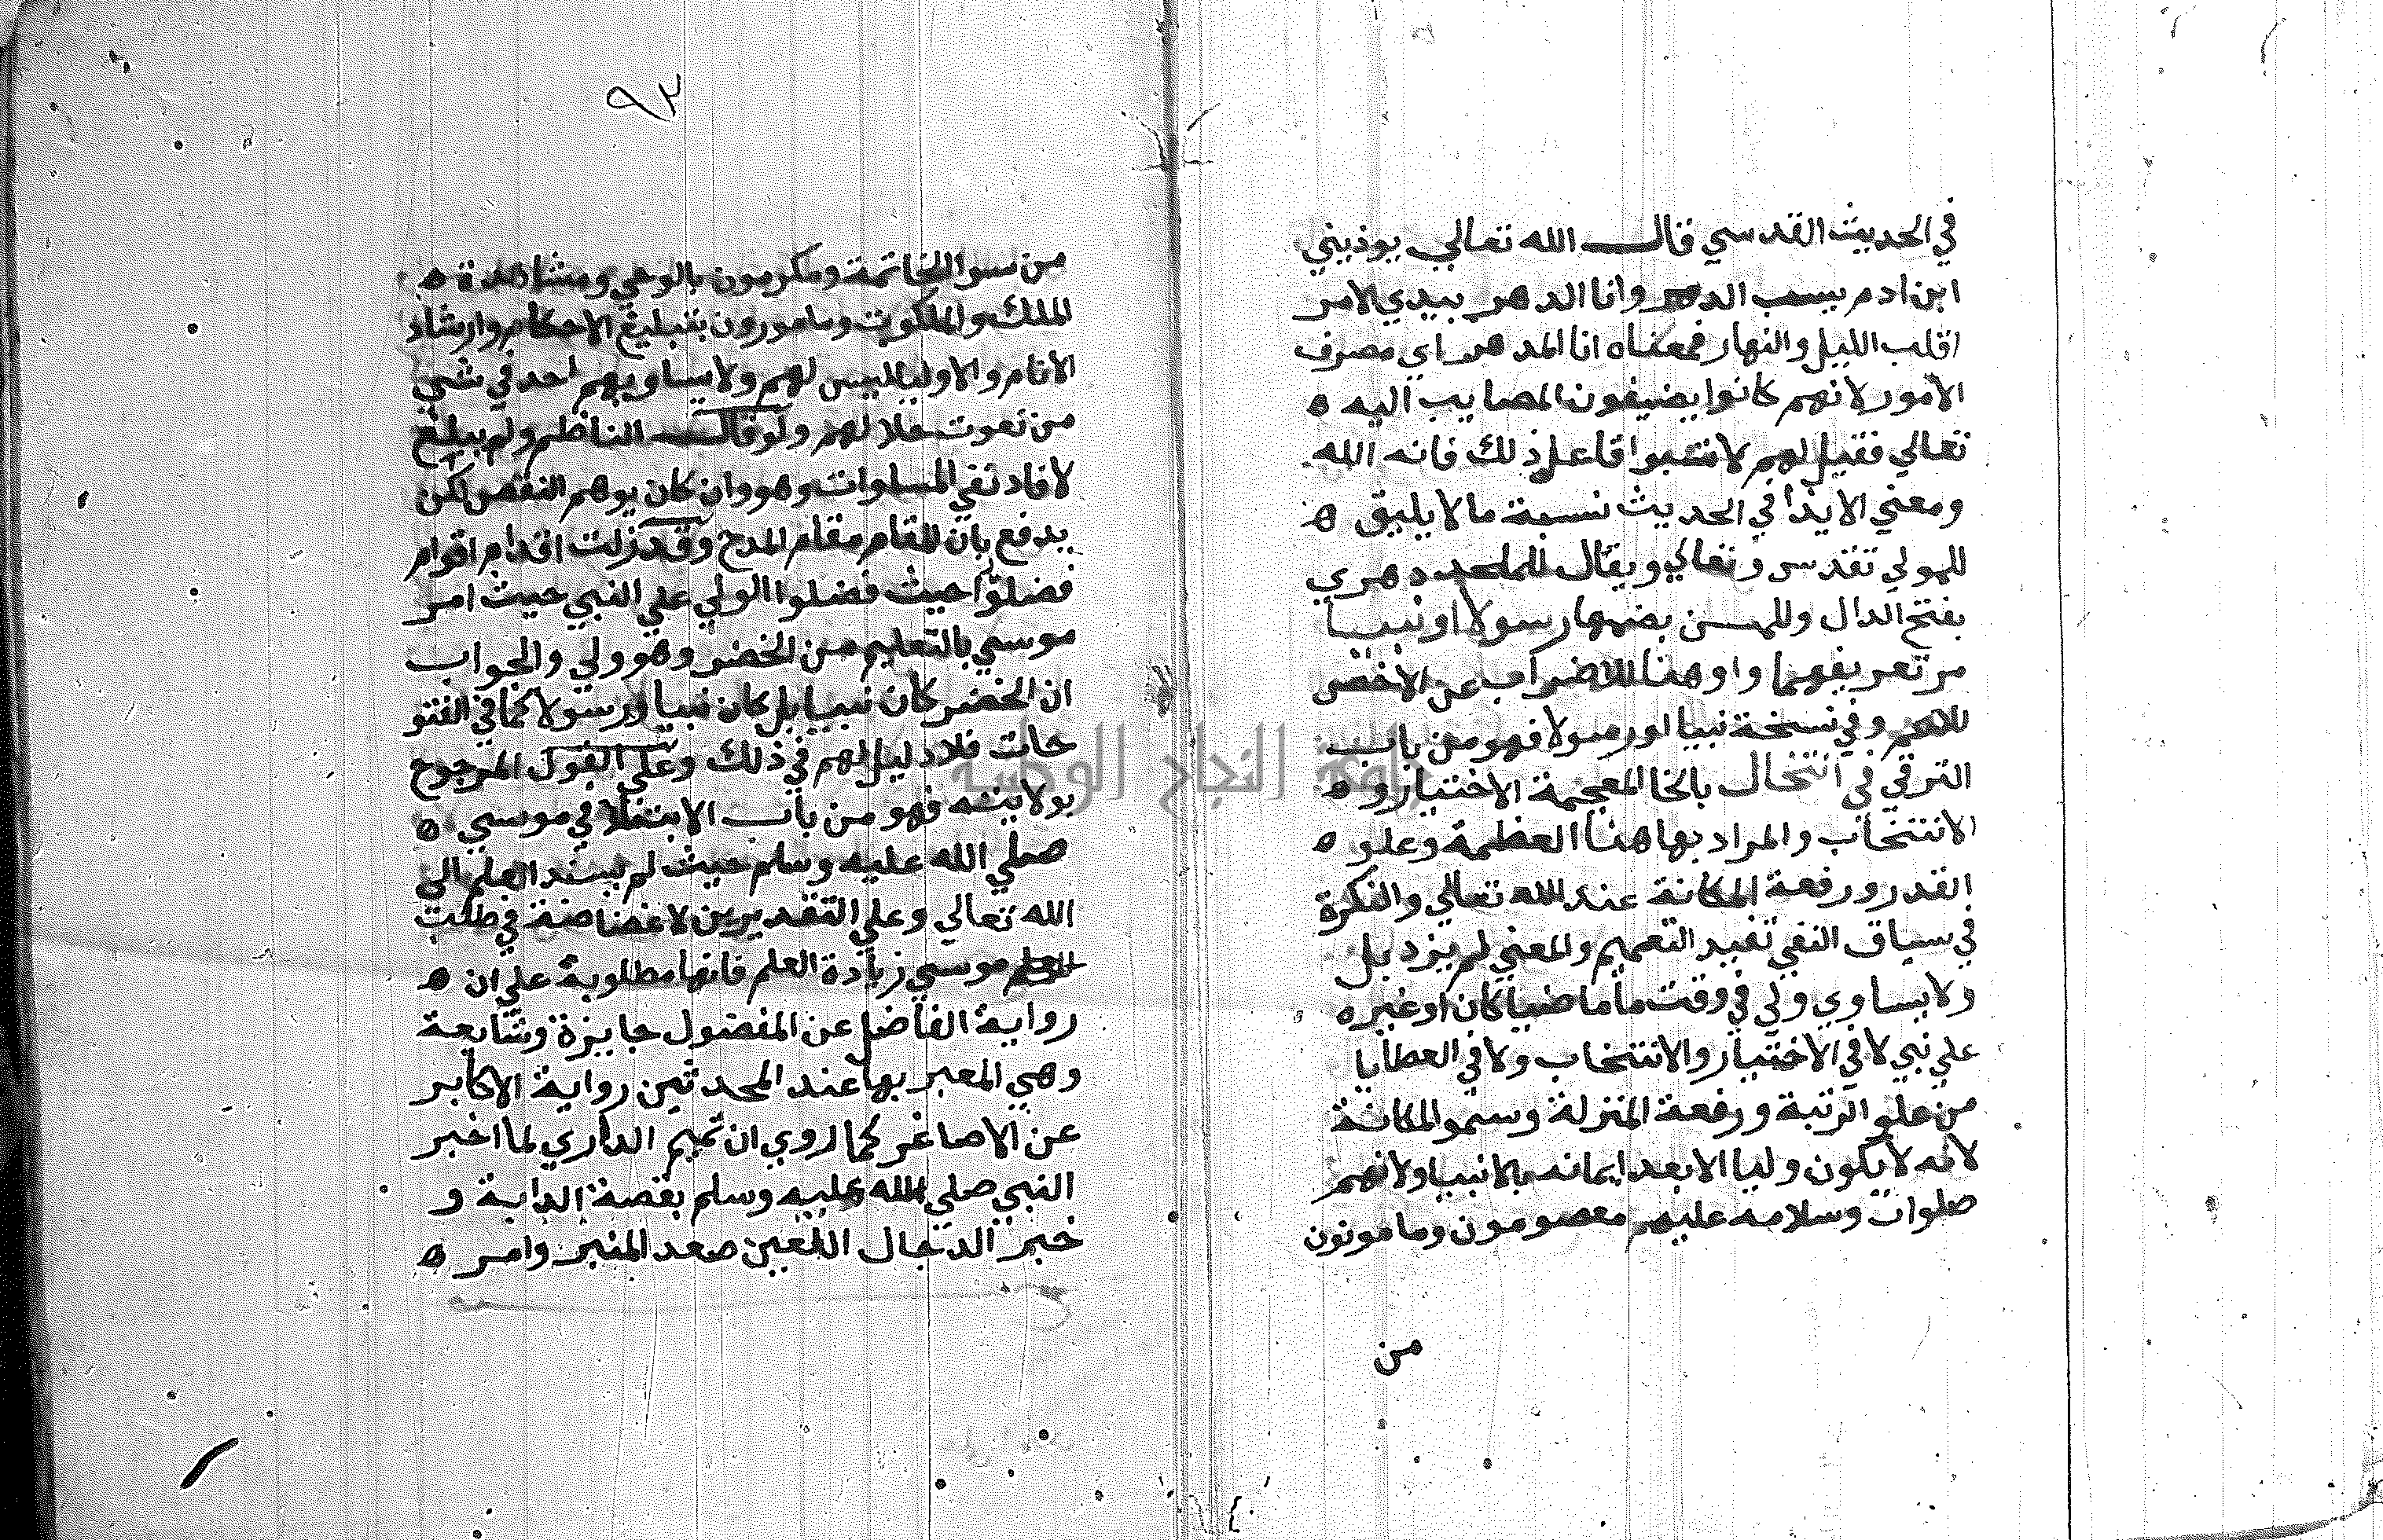 في الحديث القدسي قال الله تعالي يوذيني
ابن ادم يسب الدهر وانا الدهر بيدي الامر
اقلب الليل والنهار فمعناه انا الدهر اي مصرف
الامور لانهم كانوا يضيفون المصايب اليه ه
تعالي فقيل لهم لا تسبوا فاعل ذلك فانه الله
ومعني الايذا في الحديث نسبة ما لا يليق ه
للمولي تقدس وتعالي ويقال للملحد دهري
بفتح الدال وللمسن بضمها رسولا او نبيا
مر تعريفهما واو هنا للاضراب عن الاخص
للاعم وفي نسخة نبيا او رسولا فهو من باب
الترقي في انتخال بالخا المعجمة الاختيار و ه
الانتخاب والمراد بها هنا العظمة وعلو ه
القدر ورفعة المكانة عند الله تعالي والنكرة
في سياق النفي تفيد التعميم والمعني لم يزد بل
ولا يساوي ولي في وقت ما ماضيا كان او غيره
علي نبي لا في الاختيار والانتخاب ولا في العطايا
من علو الرتبة ورفعة المنزلة وسمو المكانة
لانه لا يكون وليا الا بعد ايمانه بالانبيا ولانهم
صلوات وسلامه عليهم معصومون ومامونون
من
٩٣
من سوا الخاتمة ومكرمون بالوحي ومشاهدة ه
الملك والملكوت ومامورون بتبليغ الاحكام وارشاد
الانام والاوليا ليس لهم ولا يساويهم احد في شي
من نعوت علا لهم ولو قال الناظم ولم يبلغ
لافاد نفي المساوات وهو وان كان يوهم النقص لكن
يدفع بان المقام مقام المدح وقد زلت اقدام اقوام
فضلوا حيث فضلوا الولي علي النبي حيث امر
موسي بالتعليم من الخضر وهو ولي والجواب
ان الخضر كان نبيا بل كان نبيا ورسولا كما في الفتو
حات فلا دليل لهم في ذلك وعلي القول المرجوح
بولايته فهو من باب الابتلا في موسي ه
صلي الله عليه وسلم حيث لم يسند العلم الي
الله تعالي وعلي التقديرين لا غضاضة في طلب
موسي زيادة العلم فانها مطلوبة علي ان ه
رواية الفاضل عن المفضول جايزة وشايعة
وهي المعبر بها عند المحدثين رواية الاكابر
عن الاصاغر كما روي ان تميم الداري لما اخبر
النبي صلي الله عليه وسلم بقصة الدابة و
خبر الدجال اللعين صعد المنبر وامر ه
جامعة النجاح الوطنية